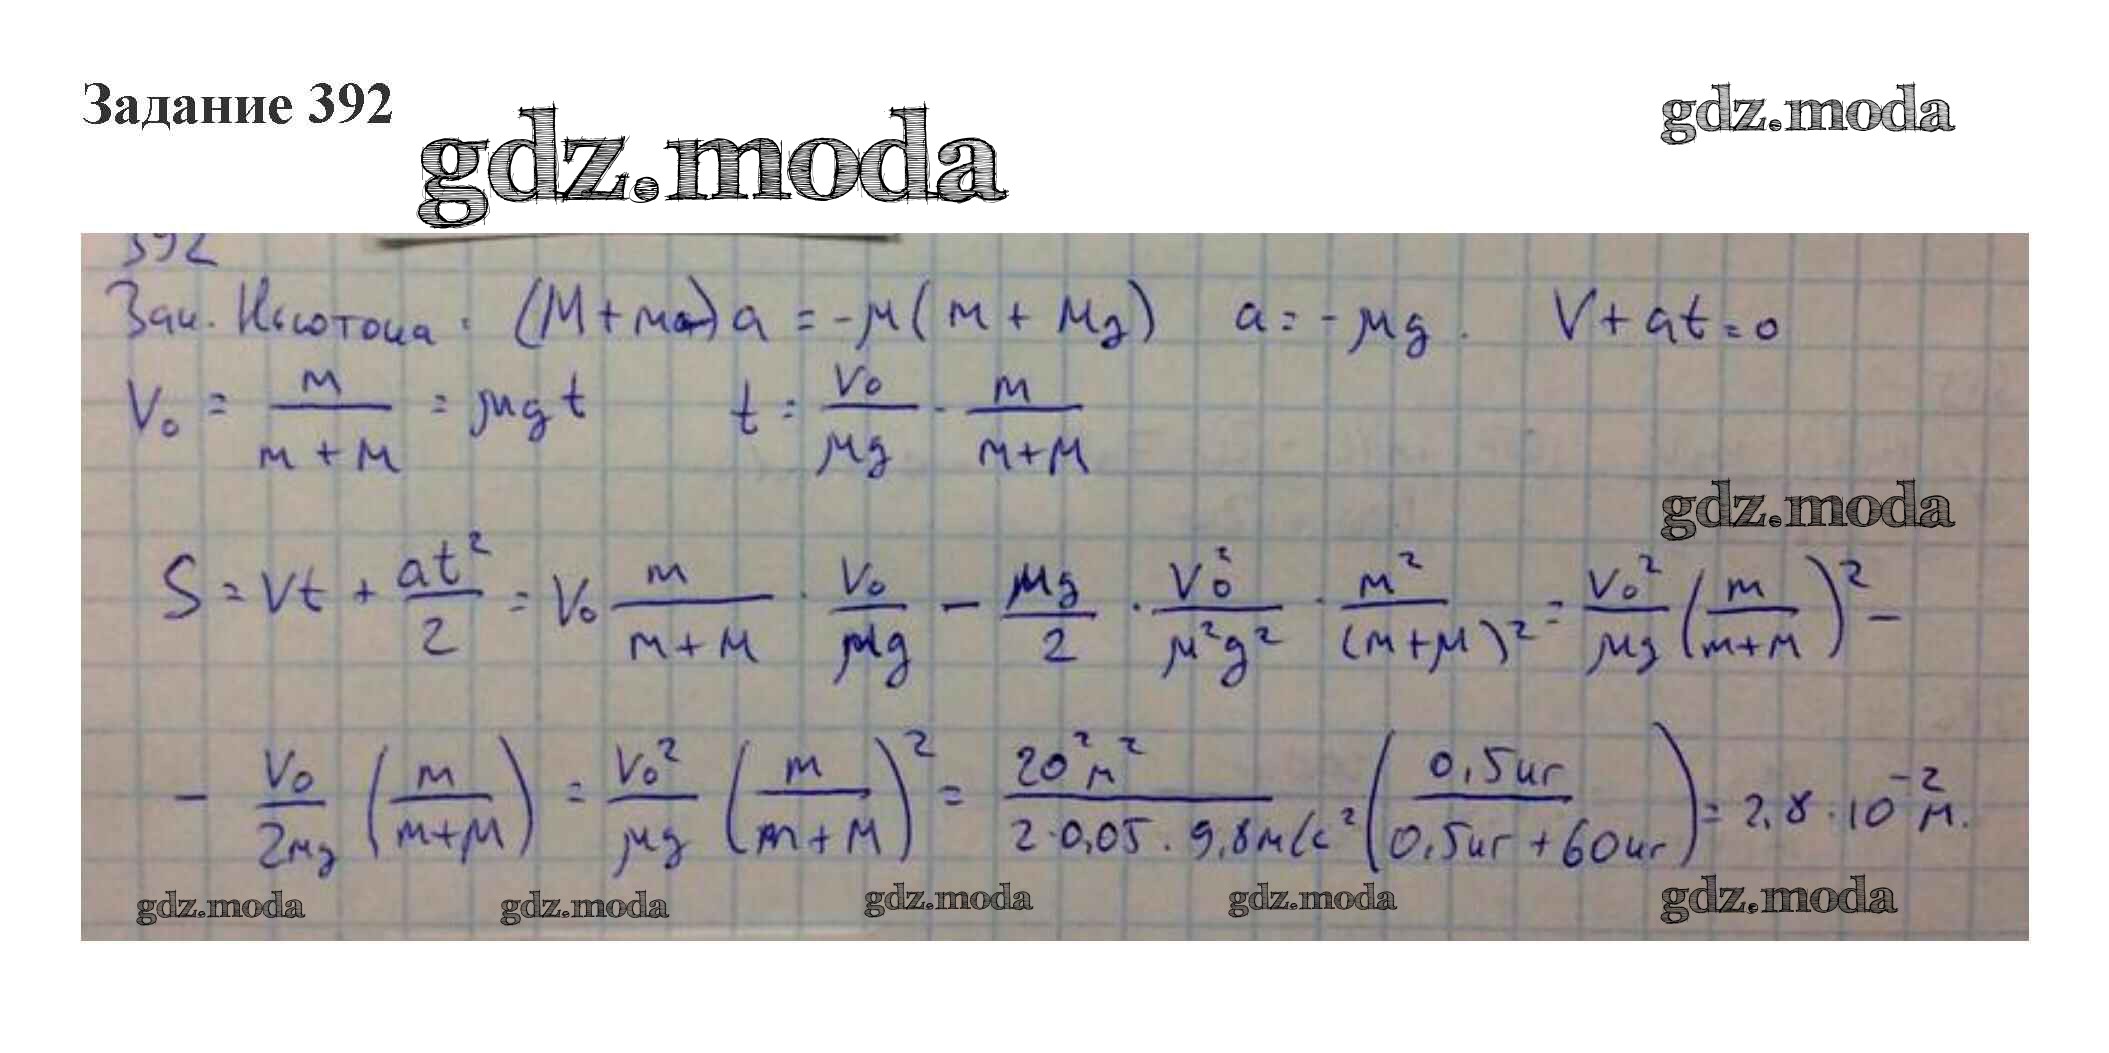 Задание 392
gdz.moda
gdz.moda
392
Зак. Ньютона: (M+m)a = -μ(m + Mg) a = -μg. V + at = 0
V₀ = m/(m+M) = μgt t = V₀/μg · m/(m+M)
gdz.moda
S = Vt + at²/2 = V₀ m/(m+M) · V₀/μg - μg/2 · V₀²/μ²g² · m²/(m+M)² = V₀²/μg (m/(m+M))² -
- V₀/2μg (m/(m+M)) = V₀²/μg (m/(m+M))² = 20²м²/2·0,05·9,8м/с² (0,5кг/(0,5кг+60кг)) = 2,8·10⁻²м.
gdz.moda gdz.moda gdz.moda gdz.moda gdz.moda